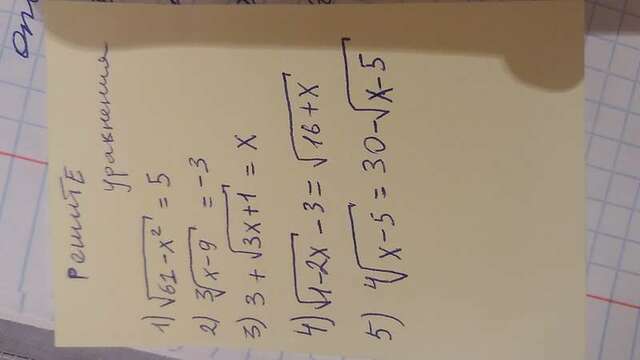 Решите
уравнения
1) √61-x² = 5
2) ³√x-9 = -3
3) 3 + √3x+1 = x
4) √1-2x - 3 = √16+x
5) ⁴√x-5 = 30-√x-5